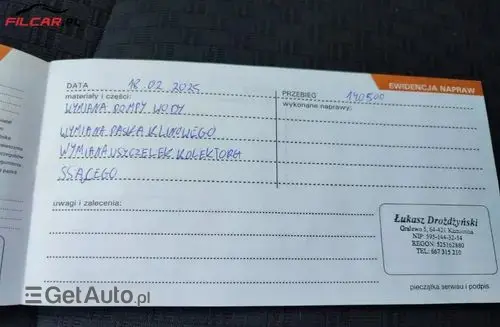 FILCAR.PL
EWIDENCJA NAPRAW
DATA 18.02.2025
PRZEBIEG 190500
materiały i części:
wykonane naprawy:
WYMIANA POMPY WODY
WYMIANA PASKA KLINOWEGO
WYMIANA USZCZELEK KOLEKTORA
SSĄCEGO
uwagi i zalecenia:
Łukasz Drożdżyński
Gralewo 5, 64-421 Kamionna
NIP: 595-144-32-54
REGON: 525162880
TEL: 667 315 210
pieczątka serwisu i podpis
GetAuto.pl